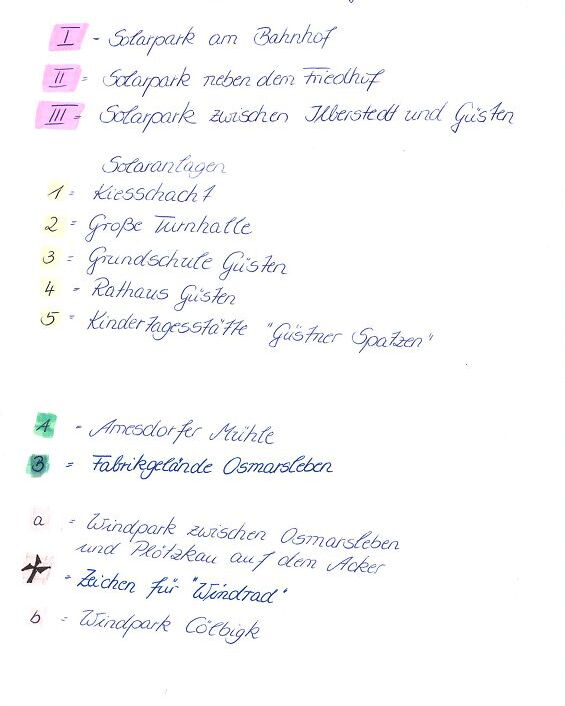 I - Solarpark am Bahnhof
II = Solarpark neben dem Friedhof
III = Solarpark zwischen Ilberstedt und Güsten
Solaranlagen
1 = Kiesschacht
2 = Große Turnhalle
3 = Grundschule Güsten
4 = Rathaus Güsten
5 = Kindertagesstätte "Güstner Spatzen"
A = Amesdorfer Mühle
B = Fabrikgelände Osmarsleben
a = Windpark zwischen Osmarsleben
und Plötzkau auf dem Acker
= Zeichen für "Windrad"
b = Windpark Cölbigk